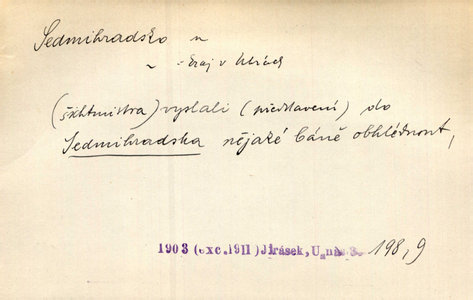 Sedmihradsko n
~ kraj v Uhrách
(šichtmistra) vyslali (představení) do
Sedmihradska nějaké báně obhlédnout,
1903 (exc. 1911) Jirásek, U nás 3. 198, 9